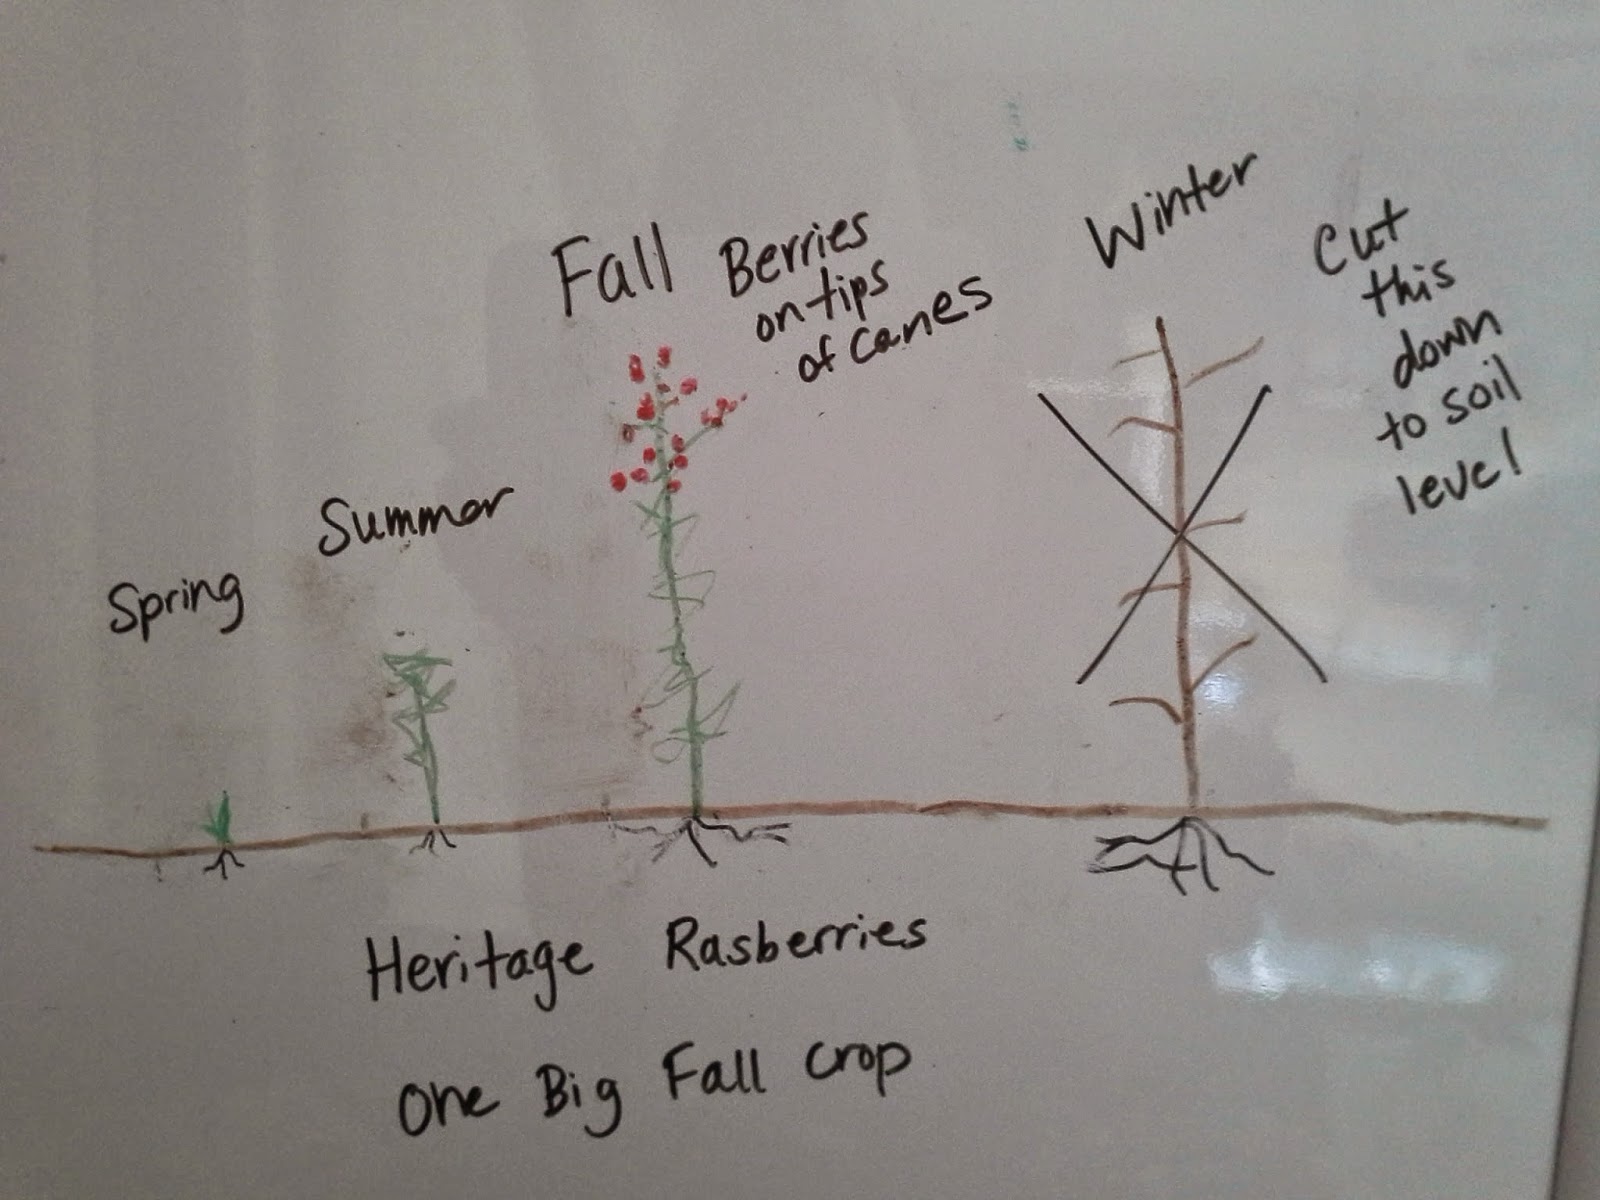 Spring
Summer
Fall
Berries
on tips
of canes
Winter
Cut
this
down
to soil
level
Heritage Rasberries
One Big Fall Crop